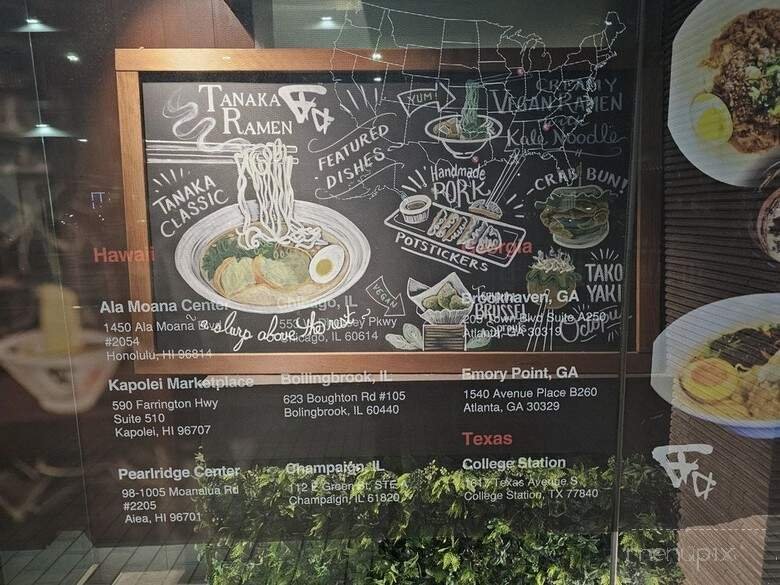 TANAKA
RAMEN
FEATURED
DISHES
YUM!
CREAMY
VEGAN RAMEN
Kale Noodle
TANAKA
CLASSIC
Handmade
PORK
POTSTICKERS
CRAB BUN!
TAKO
YAKI
Octopus
VEGAN
BRUSSEL
Sprouts
"a slurp above the rest"
Hawaii
Ala Moana Center
1450 Ala Moana Blvd
#2054
Honolulu, HI 96814
Kapolei Marketplace
590 Farrington Hwy
Suite 510
Kapolei, HI 96707
Pearlridge Center
98-1005 Moanalua Rd
#2205
Aiea, HI 96701
Chicago, IL
Pkwy
Chicago, IL 60614
Bollingbrook, IL
623 Boughton Rd #105
Bolingbrook, IL 60440
Champaign, IL
112 E Green St, STE
Champaign, IL 61820
Georgia
Brookhaven, GA
705 Town Blvd Suite A250
Atlanta, GA 30319
Emory Point, GA
1540 Avenue Place B260
Atlanta, GA 30329
Texas
College Station
1617 Texas Avenue S
College Station, TX 77840
menupix